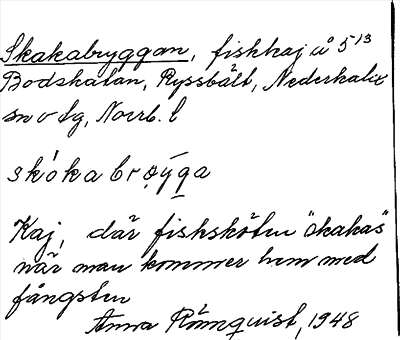 Skakabryggan, fiskkaj å 5¹³
Bodskatan, Ryssbält, Nederkalix
sn o tg, Norrb. l
skókabrøýga
Kaj, där fisksköten "skakas"
när man kommer hem med
fångsten
Anna Rönnquist, 1948